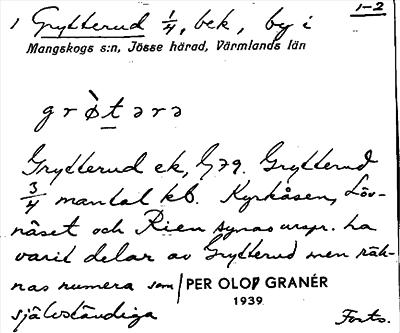 1-2
1 Grytterud 1/4, bek, by i
Mangskogs s:n, Jösse härad, Värmlands län
grø̀tərə
Grytterud ek, G79. Grytterud
3/4 mantal kb. Kyrkåsen, Löv-
näset och Rien synas urspr. ha
varit delar av Grytterud men räk-
nas numera som
självständiga
PER OLOF GRANÉR
1939
Forts.